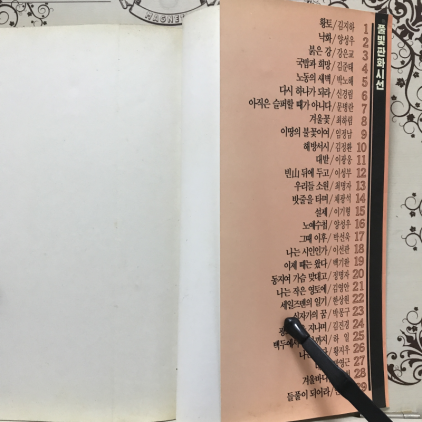 풀빛판화시선
황토/김지하 1
낙화/양성우 2
붉은 강/강은교 3
국밥과 희망/김준태 4
노동의 새벽/박노해 5
다시 하나가 되라/신경림 6
아직은 슬퍼할 때가 아니다/문병란 7
겨울꽃/최하림 8
이땅의 불꽃이여/임정남 9
해방서시/김정환 10
대밭/이광웅 11
빈山 뒤에 두고/이성부 12
우리들 소원/최명자 13
밧줄을 타며/채광석 14
설제/이기형 15
노예수첩/양성우 16
그때 이후/박선욱 17
나는 시인인가/이선관 18
이제 때는 왔다/백기완 19
동지여 가슴 맞대고/정명자 20
나는 작은 영토에/김영안 21
세일즈맨의 일기/한상원 22
꿈/박용구 23
지나며/김진경 24
까지/하 일 25
황지우 26
영근 27
겨울바다 28
들풀이 되어라 29